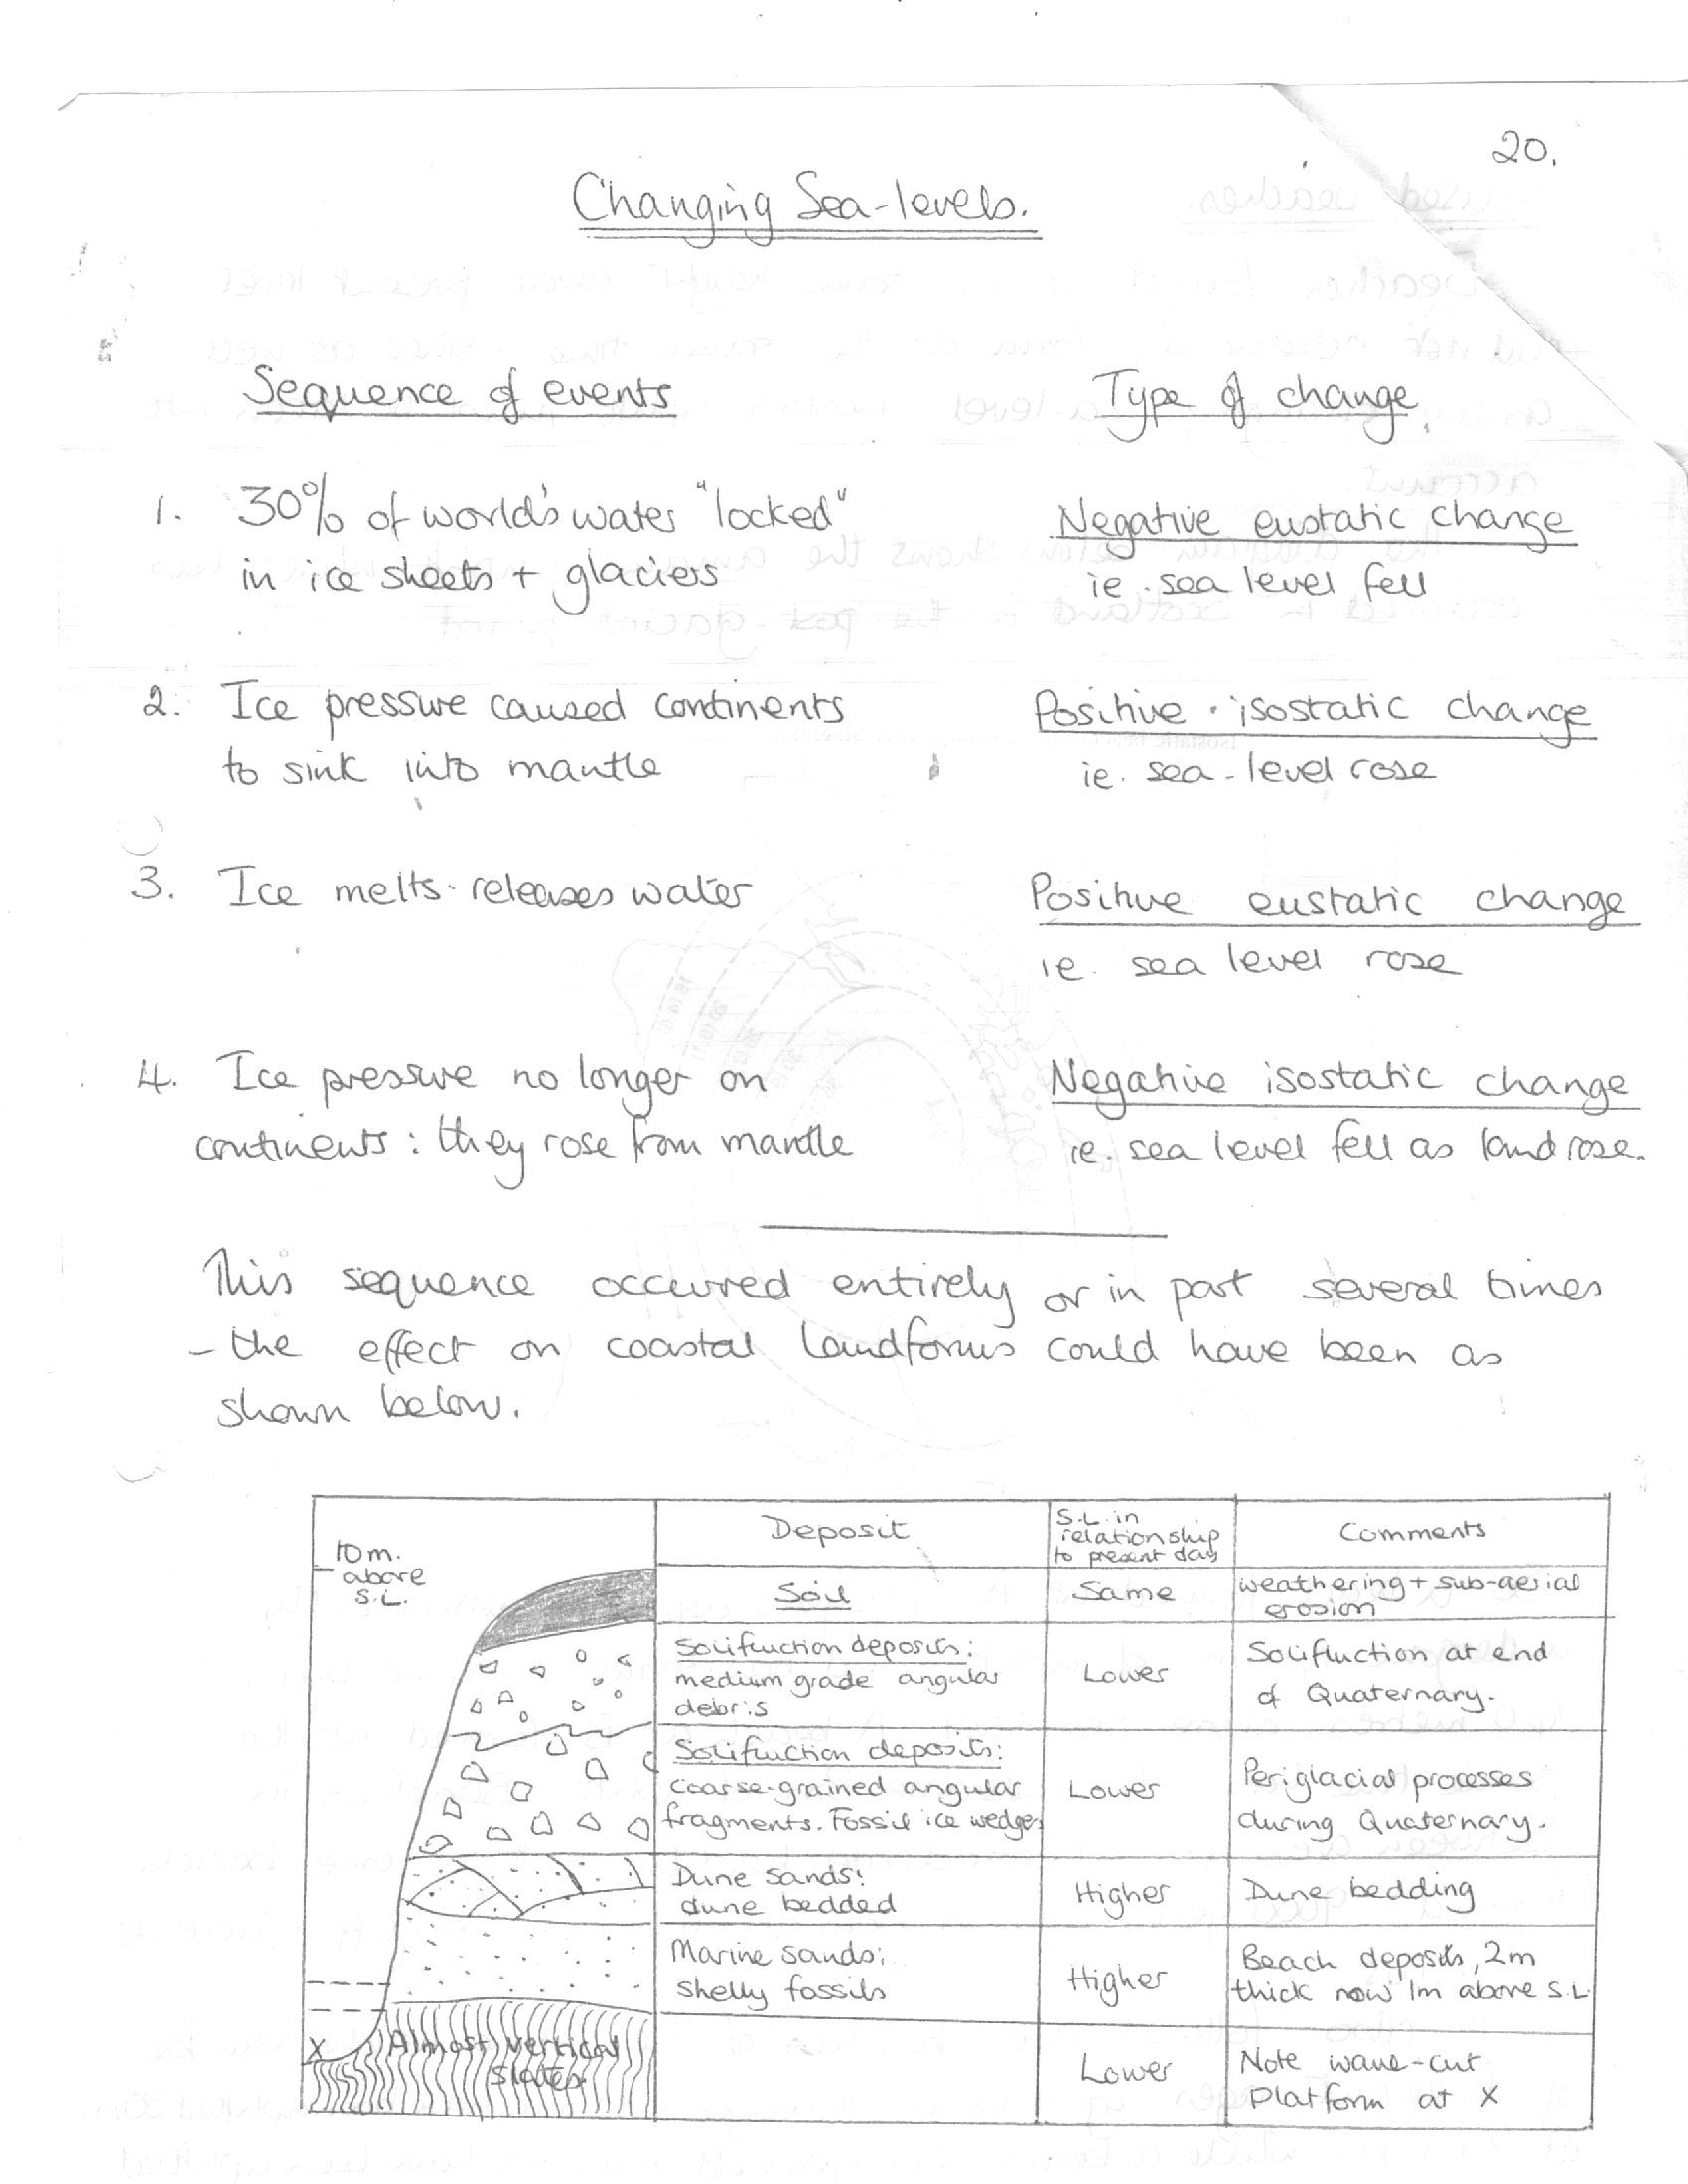 20.
Changing Sea-levels.
Sequence of events
Type of change.
1. 30% of world's water "locked"
in ice sheets + glaciers
Negative eustatic change
ie. sea level fell
2. Ice pressure caused continents
to sink into mantle
Positive isostatic change
ie. sea-level rose
3. Ice melts releases water
Positive eustatic change
ie. sea level rose
4. Ice pressure no longer on
continents: they rose from mantle
Negative isostatic change
ie. sea level fell as land rose.
This sequence occurred entirely or in part several times
- the effect on coastal landforms could have been as
shown below.
10m.
above
S.L.
Deposit
S.L. in
relationship
to present day
Comments
Soil
Same
weathering + sub-aerial
erosion
Solifluction deposits:
medium grade angular
debris
Lower
Solifluction at end
of Quaternary.
Solifluction deposits:
coarse-grained angular
fragments. Fossil ice wedges
Lower
Periglacial processes
during Quaternary.
Dune Sands:
dune bedded
Higher
Dune bedding
Marine sands;
shelly fossils
Higher
Beach deposits, 2m
thick now 1m above S.L.
X
Almost vertical
slates.
Lower
Note wave-cut
platform at X